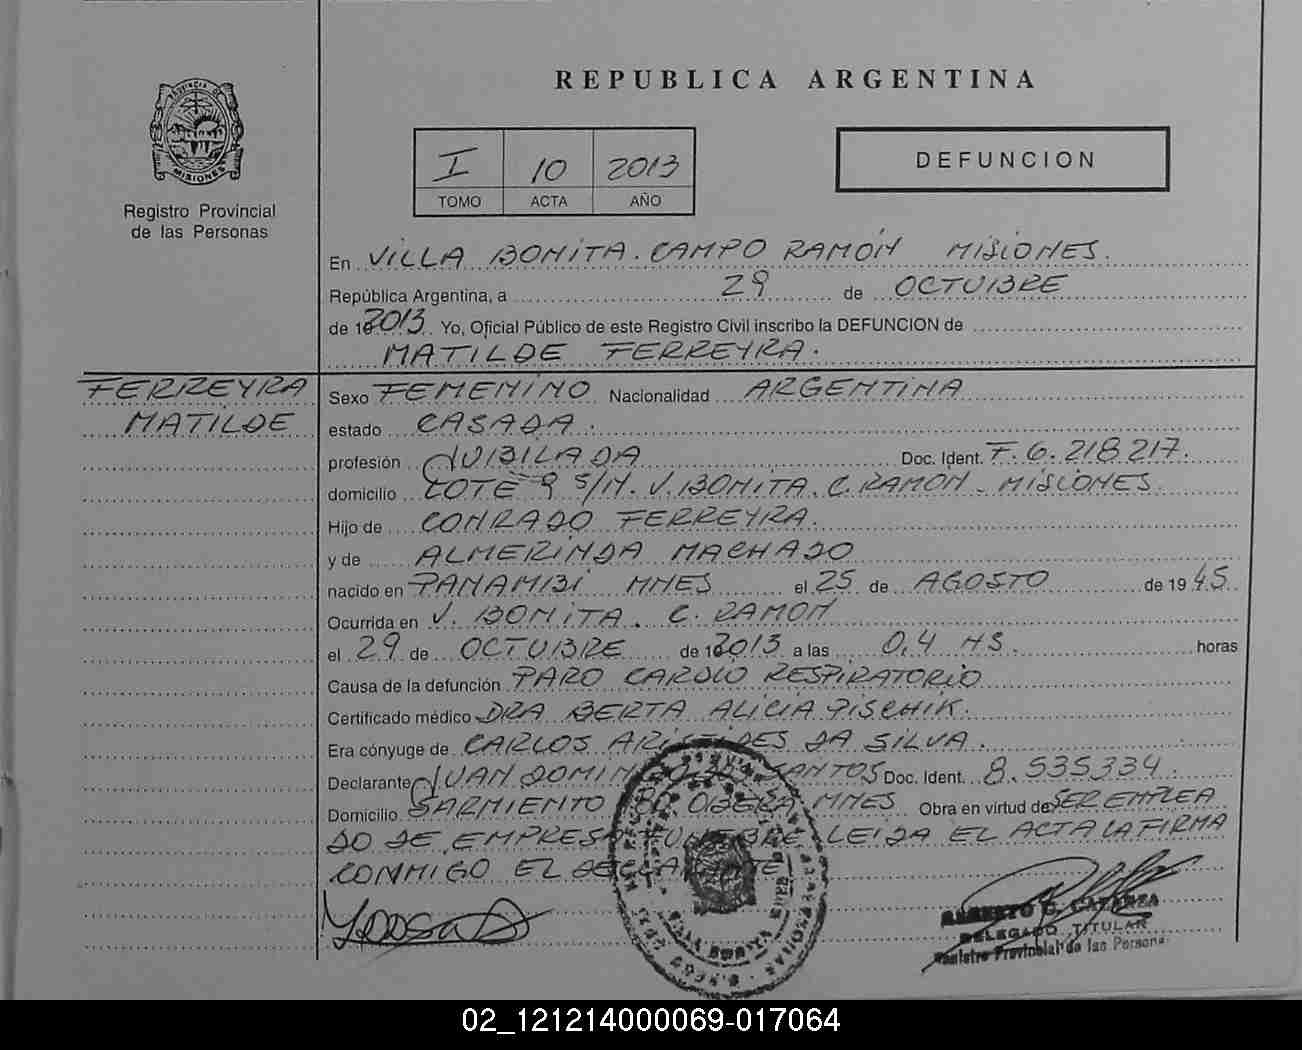 REPUBLICA ARGENTINA
PROVINCIA DE
MISIONES
Registro Provincial
de las Personas
I 10 2013
TOMO ACTA AÑO
DEFUNCION
En VILLA BONITA. CAMPO RAMÓN MISIONES.
República Argentina, a 29 de OCTUBRE
de 2013. Yo, Oficial Público de este Registro Civil inscribo la DEFUNCION de
MATILDE FERREYRA.
FERREYRA
MATILDE
Sexo FEMENINO Nacionalidad ARGENTINA
estado CASADA.
profesión JUBILADA Doc. Ident. F. 6.218.217.
domicilio LOTE 9 S/N. V. BONITA. C. RAMÓN - MISIONES.
Hijo de CONRADO FERREYRA.
y de ALMERINDA MACHADO
nacido en PANAMBÍ MNES el 25 de AGOSTO de 1945.
Ocurrida en V. BONITA. C. RAMON
el 29 de OCTUBRE de 2013 a las 0,4 HS. horas
Causa de la defunción PARO CARDIO RESPIRATORIO
Certificado médico DRA BERTA ALICIA PISCHIK.
Era cónyuge de CARLOS ARISTIDES DA SILVA.
Declarante JUAN DOMINGO SANTOS Doc. Ident. 8.535334.
Domicilio SARMIENTO OBERA MNES Obra en virtud de SER EMPLEA
DO DE EMPRESA FUNEBRE LEIDA EL ACTA LA FIRMA
CONMIGO EL DECLARANTE
DELEGADO TITULAR
Registro Provincial de las Personas
02_121214000069-017064